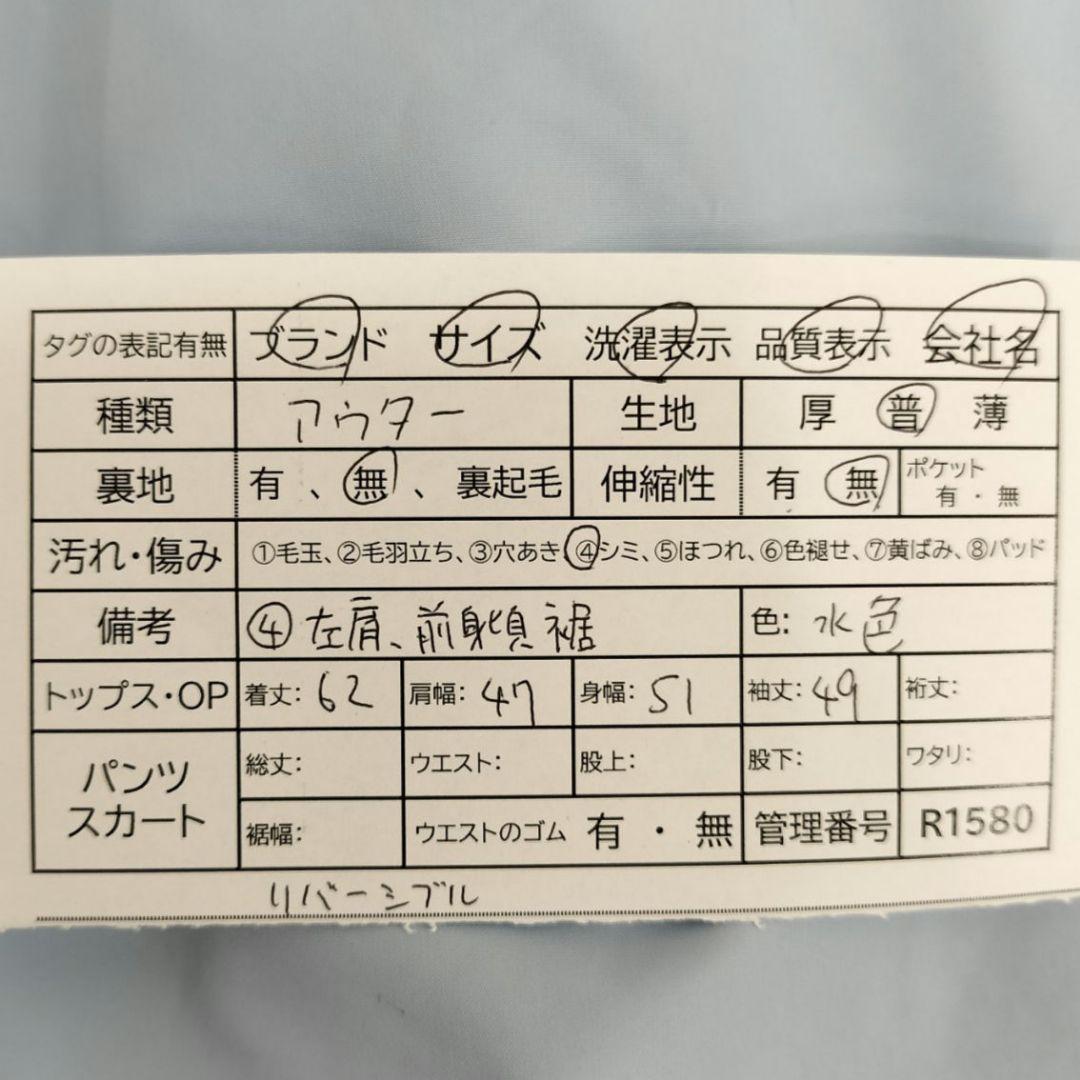 タグの表記有無 ブランド サイズ 洗濯表示 品質表示 会社名
種類 アウター 生地 厚 普 薄
裏地 有 、 無 、 裏起毛 伸縮性 有 無 ポケット 有 ・ 無
汚れ・傷み ①毛玉、②毛羽立ち、③穴あき、④シミ、⑤ほつれ、⑥色褪せ、⑦黄ばみ、⑧パッド
備考 ④左肩、前身頃 裾 色: 水色
トップス・OP 着丈: 62 肩幅: 47 身幅: 51 袖丈: 49 裄丈:
パンツ スカート 総丈: ウエスト: 股上: 股下: ワタリ:
裾幅: ウエストのゴム 有 ・ 無 管理番号 R1580
リバーシブル